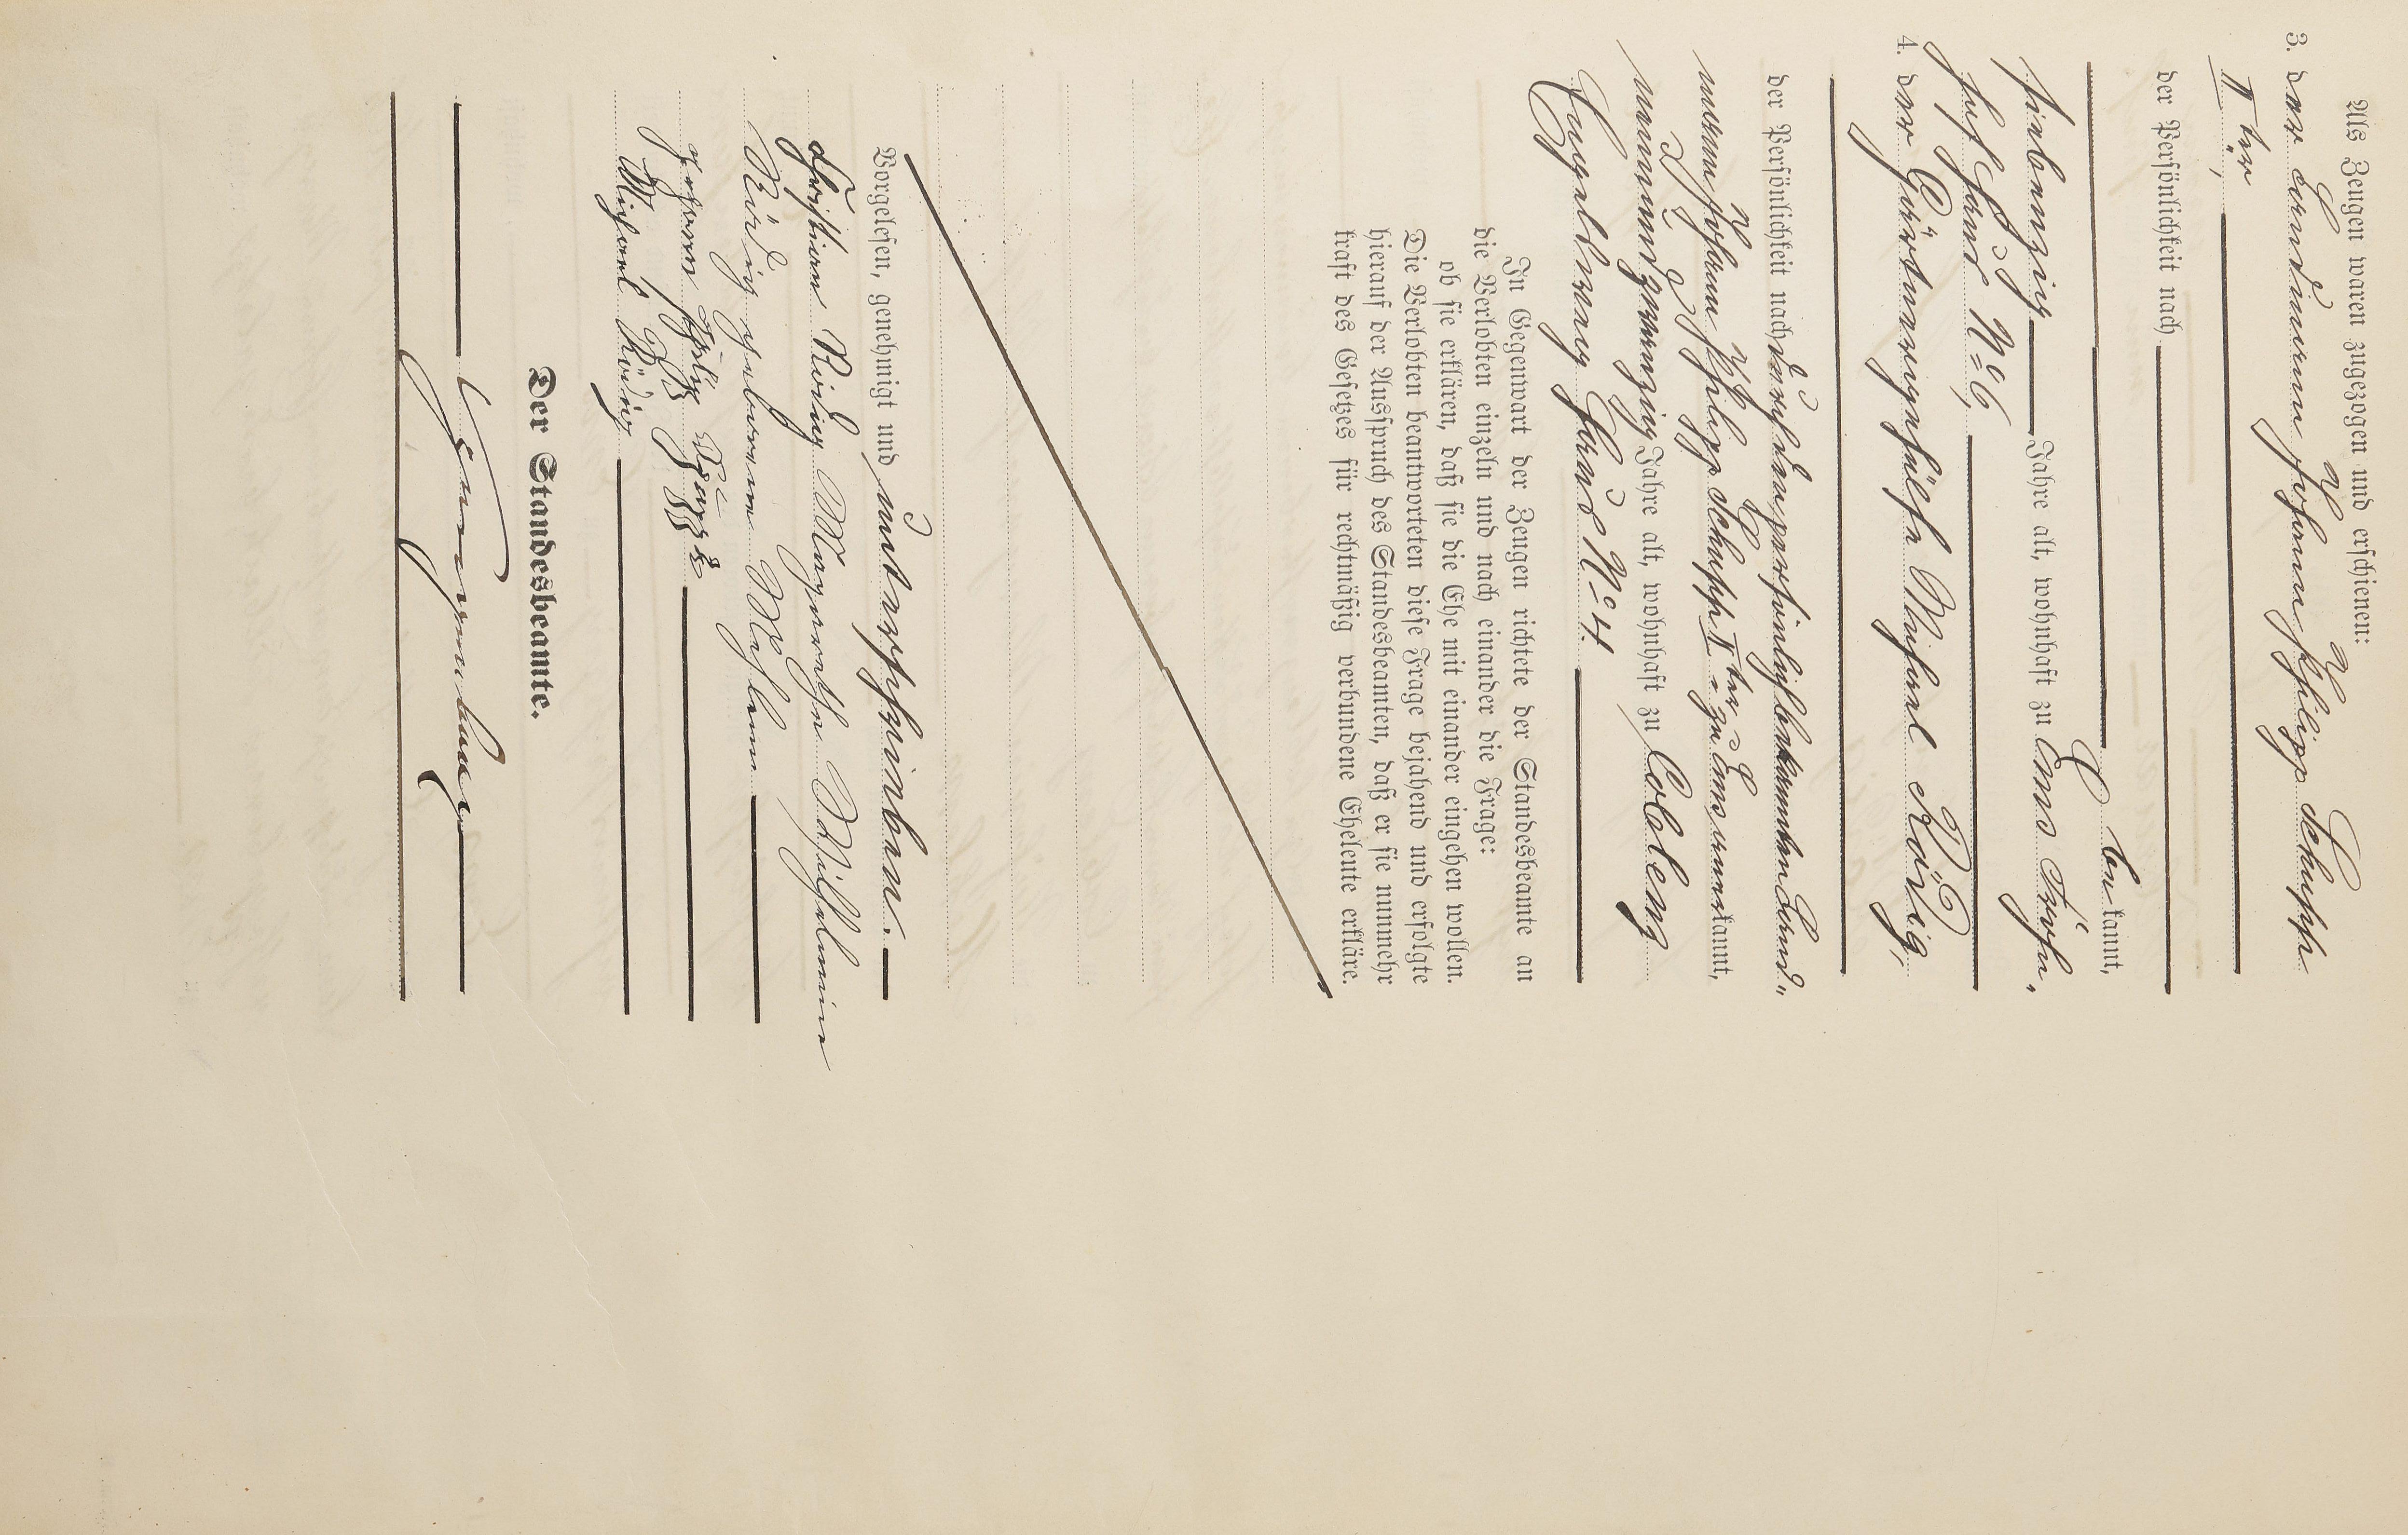 Als Zeugen waren zugezogen und erschienen:
3. der Landmann Johann Philipp Schupp
II ter,
der Persönlichkeit nach
be kannt,
siebenzig Jahre alt, wohnhaft zu Ems
N° 6,
4. der Gärtnergehülfe Michael Rödig,
der Persönlichkeit nach durch den persönlich bekannten Land-
mann Johann Philipp Schupp II ter zu Ems anerkannt,
neunundzwanzig Jahre alt, wohnhaft zu Coblenz
N° 4.
In Gegenwart der Zeugen richtete der Standesbeamte an
die Verlobten einzeln und nach einander die Frage:
ob sie erklären, daß sie die Ehe mit einander eingehen wollen.
Die Verlobten beantworteten diese Frage bejahend und erfolgte
hierauf der Ausspruch des Standesbeamten, daß er sie nunmehr
kraft des Gesetzes für rechtmäßig verbundene Eheleute erkläre.
Vorgelesen, genehmigt und unterschrieben.
Christian Rödig Margarethe Wilhelmine
Rödig geborene
Michael Rödig
Der Standesbeamte.